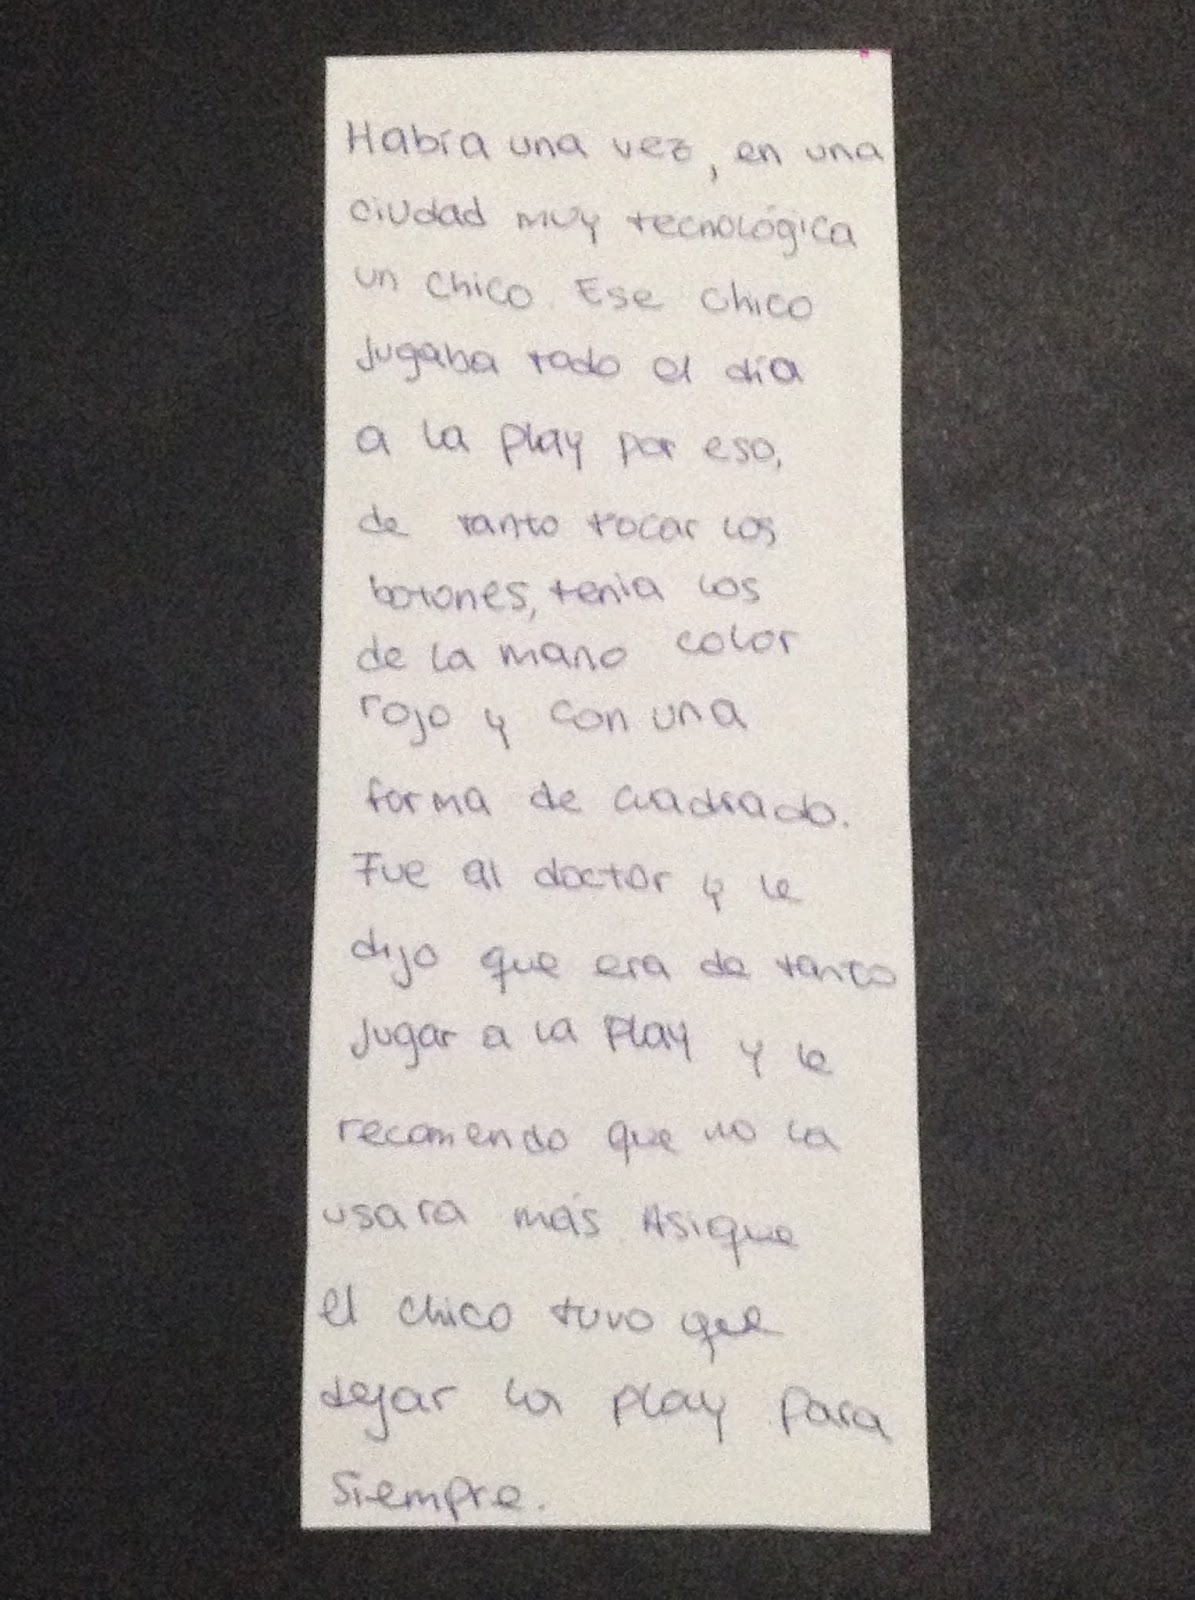 Había una vez, en una
ciudad muy tecnológica
un chico. Ese chico
jugaba todo el día
a la play por eso,
de tanto tocar los
botones, tenia los
de la mano color
rojo y con una
forma de cuadrado.
Fue al doctor y le
dijo que era de tanto
jugar a la play y le
recomendo que no la
usara más. Asique
el chico tuvo que
dejar la play para
siempre.